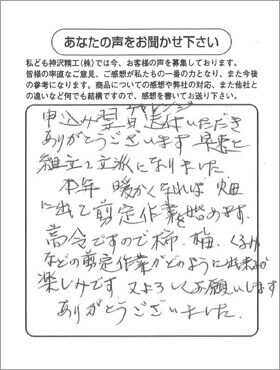 あなたの声をお聞かせ下さい
私ども神沢精工(株)では今、お客様の声を募集しております。
皆様の率直なご意見、ご感想が私たちの一番の力となり、また今後
の参考になります。商品についての感想や弊社の対応、また他社と
の違いなど何でも結構ですので、感想を書いてお送り下さい。
申込み翌日 送はいただき
ありがとうございます 早速と
組立て立派になりました
本年 暖かくなれば 畑
に出て剪定作業を始めます.
高分ですので柿、梅、くるみ
などの剪定作業がどのように出来るか
楽しみです 又よろしくお願いします
ありがとうございました.